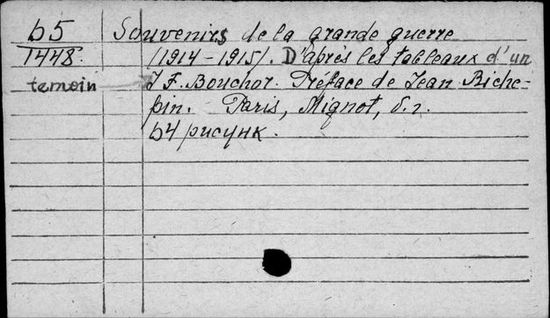 b5 Souvenirs de la grande guerre
1448. (1914-1915). D'après les tableaux d'un
temoin J F. Bouchor. Préface de Jean Riche-
pin. Paris, Mignot, б.г.
64 рисунк.